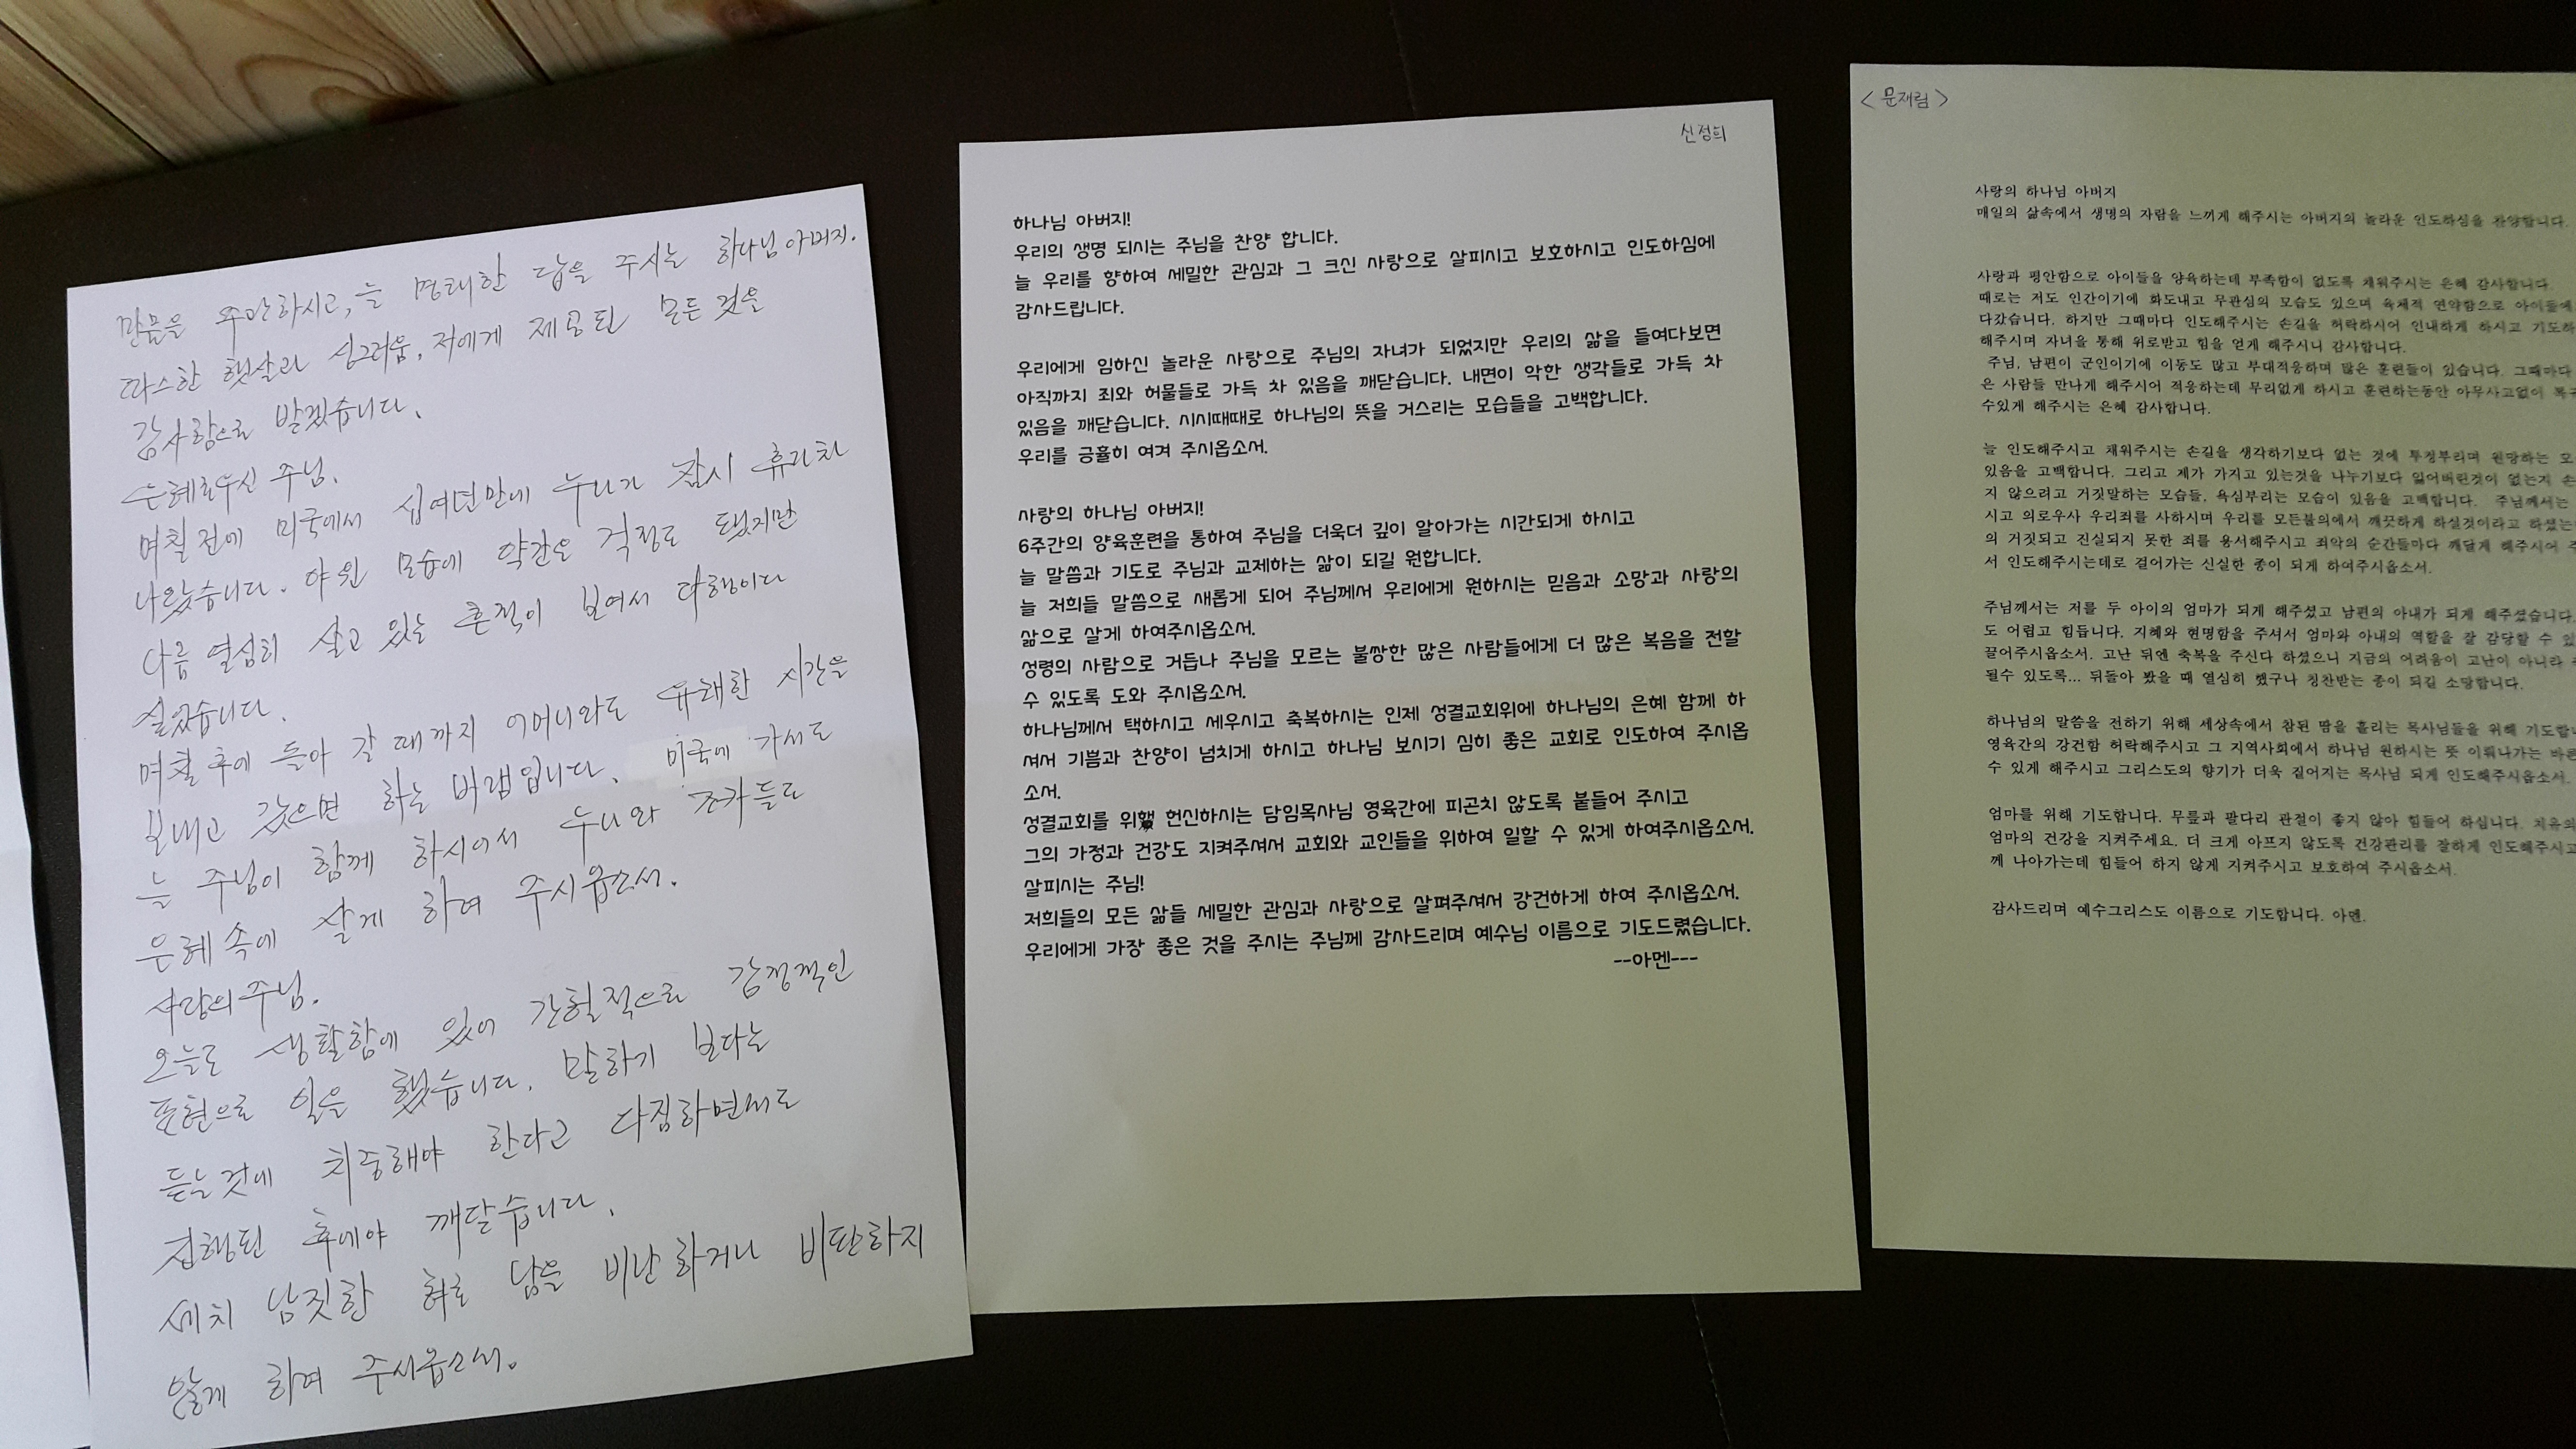 만물을 주관하시고, 늘 명쾌한 답을 주시는 하나님 아버지.
따스한 햇살과 싱그러움, 저에게 제공된 모든 것을
감사함으로 받겠습니다.
은혜로우신 주님.
며칠 전에 미국에서 십여년만에 누나가 잠시 휴가차
나왔습니다. 야윈 모습에 약간은 걱정도 됐지만
나름 열심히 살고 있는 흔적이 보여서 다행이다
싶었습니다.
며칠 후에 돌아 갈 때까지 어머니와도 유쾌한 시간을
보내고 갔으면 하는 바램입니다. 미국에 가서도
늘 주님이 함께 하시어서 누나와 조카들도
은혜 속에 살게 하여 주시옵소서.
사랑의 주님.
오늘도 생활함에 있어 간헐적으로 감정적인
표현으로 일을 했습니다. 말하기 보다는
듣는것에 치중해야 한다고 다짐하면서도
집행된 후에야 깨달습니다.
세치 남짓한 혀로 남을 비난하거나 비판하지
않게 하여 주시옵소서.
신정희
하나님 아버지!
우리의 생명 되시는 주님을 찬양 합니다.
늘 우리를 향하여 세밀한 관심과 그 크신 사랑으로 살피시고 보호하시고 인도하심에
감사드립니다.
우리에게 임하신 놀라운 사랑으로 주님의 자녀가 되었지만 우리의 삶을 들여다보면
아직까지 죄와 허물들로 가득 차 있음을 깨닫습니다. 내면이 악한 생각들로 가득 차
있음을 깨닫습니다. 시시때때로 하나님의 뜻을 거스리는 모습들을 고백합니다.
우리를 긍휼히 여겨 주시옵소서.
사랑의 하나님 아버지!
6주간의 양육훈련을 통하여 주님을 더욱더 깊이 알아가는 시간되게 하시고
늘 말씀과 기도로 주님과 교제하는 삶이 되길 원합니다.
늘 저희들 말씀으로 새롭게 되어 주님께서 우리에게 원하시는 믿음과 소망과 사랑의
삶으로 살게 하여주시옵소서.
성령의 사람으로 거듭나 주님을 모르는 불쌍한 많은 사람들에게 더 많은 복음을 전할
수 있도록 도와 주시옵소서.
하나님께서 택하시고 세우시고 축복하시는 인제 성결교회위에 하나님의 은혜 함께 하
셔서 기쁨과 찬양이 넘치게 하시고 하나님 보시기 심히 좋은 교회로 인도하여 주시옵
소서.
성결교회를 위해 헌신하시는 담임목사님 영육간에 피곤치 않도록 붙들어 주시고
그의 가정과 건강도 지켜주셔서 교회와 교인들을 위하여 일할 수 있게 하여주시옵소서.
살피시는 주님!
저희들의 모든 삶들 세밀한 관심과 사랑으로 살펴주셔서 강건하게 하여 주시옵소서.
우리에게 가장 좋은 것을 주시는 주님께 감사드리며 예수님 이름으로 기도드렸습니다.
--아멘---
<문재림>
사랑의 하나님 아버지
매일의 삶속에서 생명의 자람을 느끼게 해주시는 아버지의 놀라운 인도하심을 찬양합니다.
사랑과 평안함으로 아이들을 양육하는데 부족함이 없도록 채워주시는 은혜 감사합니다.
때로는 저도 인간이기에 화도내고 무관심의 모습도 있으며 육체적 연약함으로 아이들에
다갔습니다. 하지만 그때마다 인도해주시는 손길을 허락하시어 인내하게 하시고 기도하
해주시며 자녀을 통해 위로받고 힘을 얻게 해주시니 감사합니다.
주님, 남편이 군인이기에 이동도 많고 부대적응하며 많은 훈련들이 있습니다. 그때마다
은 사람들 만나게 해주시어 적응하는데 무리없게 하시고 훈련하는동안 아무사고없이
수있게 해주시는 은혜 감사합니다.
늘 인도해주시고 채워주시는 손길을 생각하기보다 없는 것에 투정부리며 원망하는 모
있음을 고백합니다. 그리고 제가 가지고 있는것을 나누기보다 잃어버린것이 없는지 손
지 않으려고 거짓말하는 모습들, 욕심부리는 모습이 있음을 고백합니다. 주님께서는
시고 의로우사 우리죄를 사하시며 우리를 모든불의에서 깨끗하게 하실것이라고 하셨는
의 거짓되고 진실되지 못한 죄를 용서해주시고 죄악의 순간들마다 깨달게 해주시어 주
서 인도해주시는데로 걸어가는 신실한 종이 되게 하여주시옵소서.
주님께서는 저를 두 아이의 엄마가 되게 해주셨고 남편의 아내가 되게 해주셨습니다.
도 어렵고 힘듭니다. 지혜와 현명함을 주셔서 엄마와 아내의 역할을 잘 감당할 수 있
끌어주시옵소서. 고난 뒤엔 축복을 주신다 하셨으니 지금의 어려움이 고난이 아니라
될수 있도록... 뒤돌아 봤을 때 열심히 했구나 칭찬받는 종이 되길 소망합니다.
하나님의 말씀을 전하기 위해 세상속에서 참된 땀을 흘리는 목사님들을 위해 기도합니
영육간의 강건함 허락해주시고 그 지역사회에서 하나님 원하시는 뜻 이뤄나가는 바른
수 있게 해주시고 그리스도의 향기가 더욱 짙어지는 목사님 되게 인도해주시옵소서.
엄마를 위해 기도합니다. 무릎과 팔다리 관절이 좋지 않아 힘들어 하십니다. 치유의
엄마의 건강을 지켜주세요. 더 크게 아프지 않도록 건강관리를 잘하게 인도해주시고
께 나아가는데 힘들어 하지 않게 지켜주시고 보호하여 주시옵소서.
감사드리며 예수그리스도 이름으로 기도합니다. 아멘.